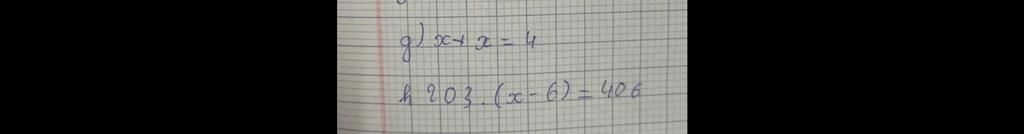 g) x + x = 4
h 203 . (x - 6) = 406